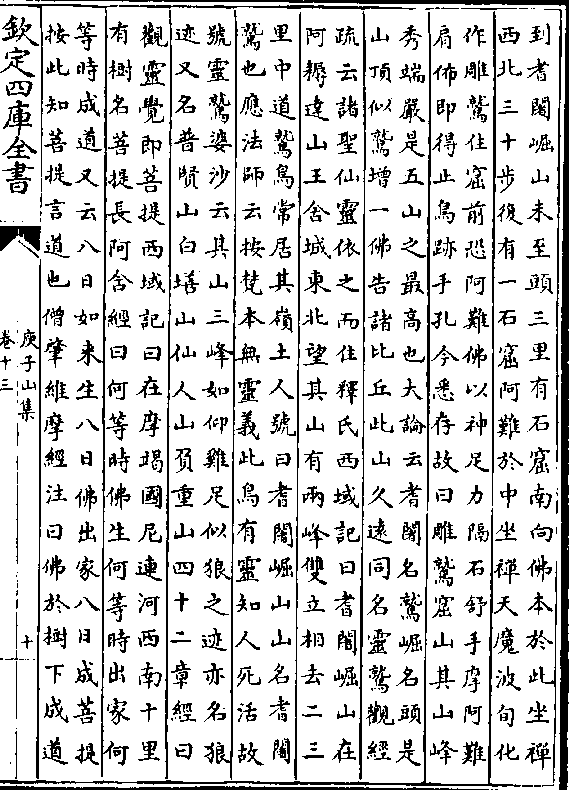 到耆闍崛山未至頭三里有石窟南向佛本於此坐禪
西北三十步復有一石窟阿難於中坐禪天魔波旬化
作雕鷲住窟前恐阿難佛以神足力隔石舒手摩阿難
肩佈即得止鳥跡手孔今悉存故曰雕鷲窟山其山峰
秀端嚴是五山之最高也大論云耆闍名鷲崛名頭是
山頂似鷲增一佛告諸比丘此山久遠同名靈鷲觀經
疏云諸聖仙靈依之而住釋氏西域記曰耆闍崛山在
阿耨達山王舍城東北望其山有兩峰雙立相去二三
里中道鷲鳥常居其嶺土人號曰耆闍崛山山名耆闍
鷲也應法師云按梵本無靈義此鳥有靈知人死活故
號靈鷲婆沙云其山三峰如仰雞足似狼之迹亦名狼
迹又名普賢山白墡山仙人山負重山四十二章經曰
觀靈覺即菩提西域記曰在摩竭國尼連河西南十里
有樹名菩提長阿舍經曰何等時佛生何等時出家何
等時成道又云八日如来生八日佛出家八日成菩提
按此知菩提言道也僧肇維摩經注曰佛於樹下成道
欽定四庫全書
庾子山集
卷十三
十